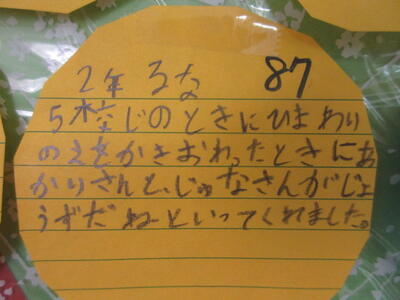 2年 るな 87
5校じのときにひまわり
のえをかきおわったときにあ
かりさんと、じゅなさんがじょ
うずだねーといってくれました。